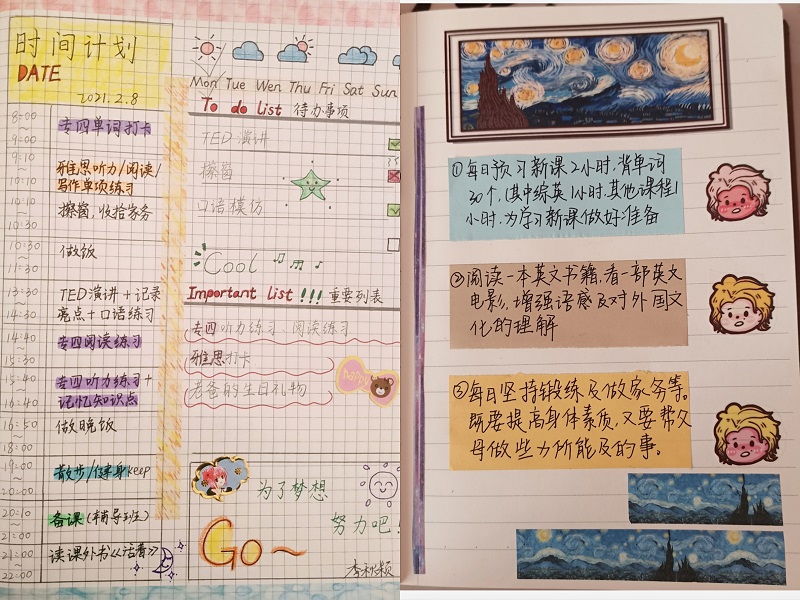 时间计划
DATE
2021.2.8
8:00
~
9:00
专四单词打卡
9:10
~
10:10
雅思听力/阅读/
写作单项练习
10:10
~
10:30
擦窗,收拾家务
10:30
~
11:30
做饭
13:30
~
14:30
TED演讲+记录
亮点+口语练习
14:40
~
15:30
专四阅读练习
15:40
~
16:40
专四听力练习+
记忆知识点
16:50
~
18:00
做晚饭
19:00
~
20:00
散步/健身keep
20:10
~
21:00
备课(辅导班)
21:00
~
22:00
读课外书《活着》
Mon Tue Wen Thu Fri Sat Sun
To do list 待办事项
TED演讲
擦窗
口语模仿
Cool
Important List!!!重要列表
专四听力练习、阅读练习
雅思打卡
老爸的生日礼物
happy
为了梦想
努力吧!
Go~
李秋颖
①每日预习新课2小时,背单词
30个,(其中综英1小时,其他课程1
小时,为学习新课做好准备
②阅读一本英文书籍,看一部英文
电影,增强语感及对外国文
化的理解
③每日坚持锻练及做家务等。
既要提高身体素质,又要帮父
母做些力所能及的事。